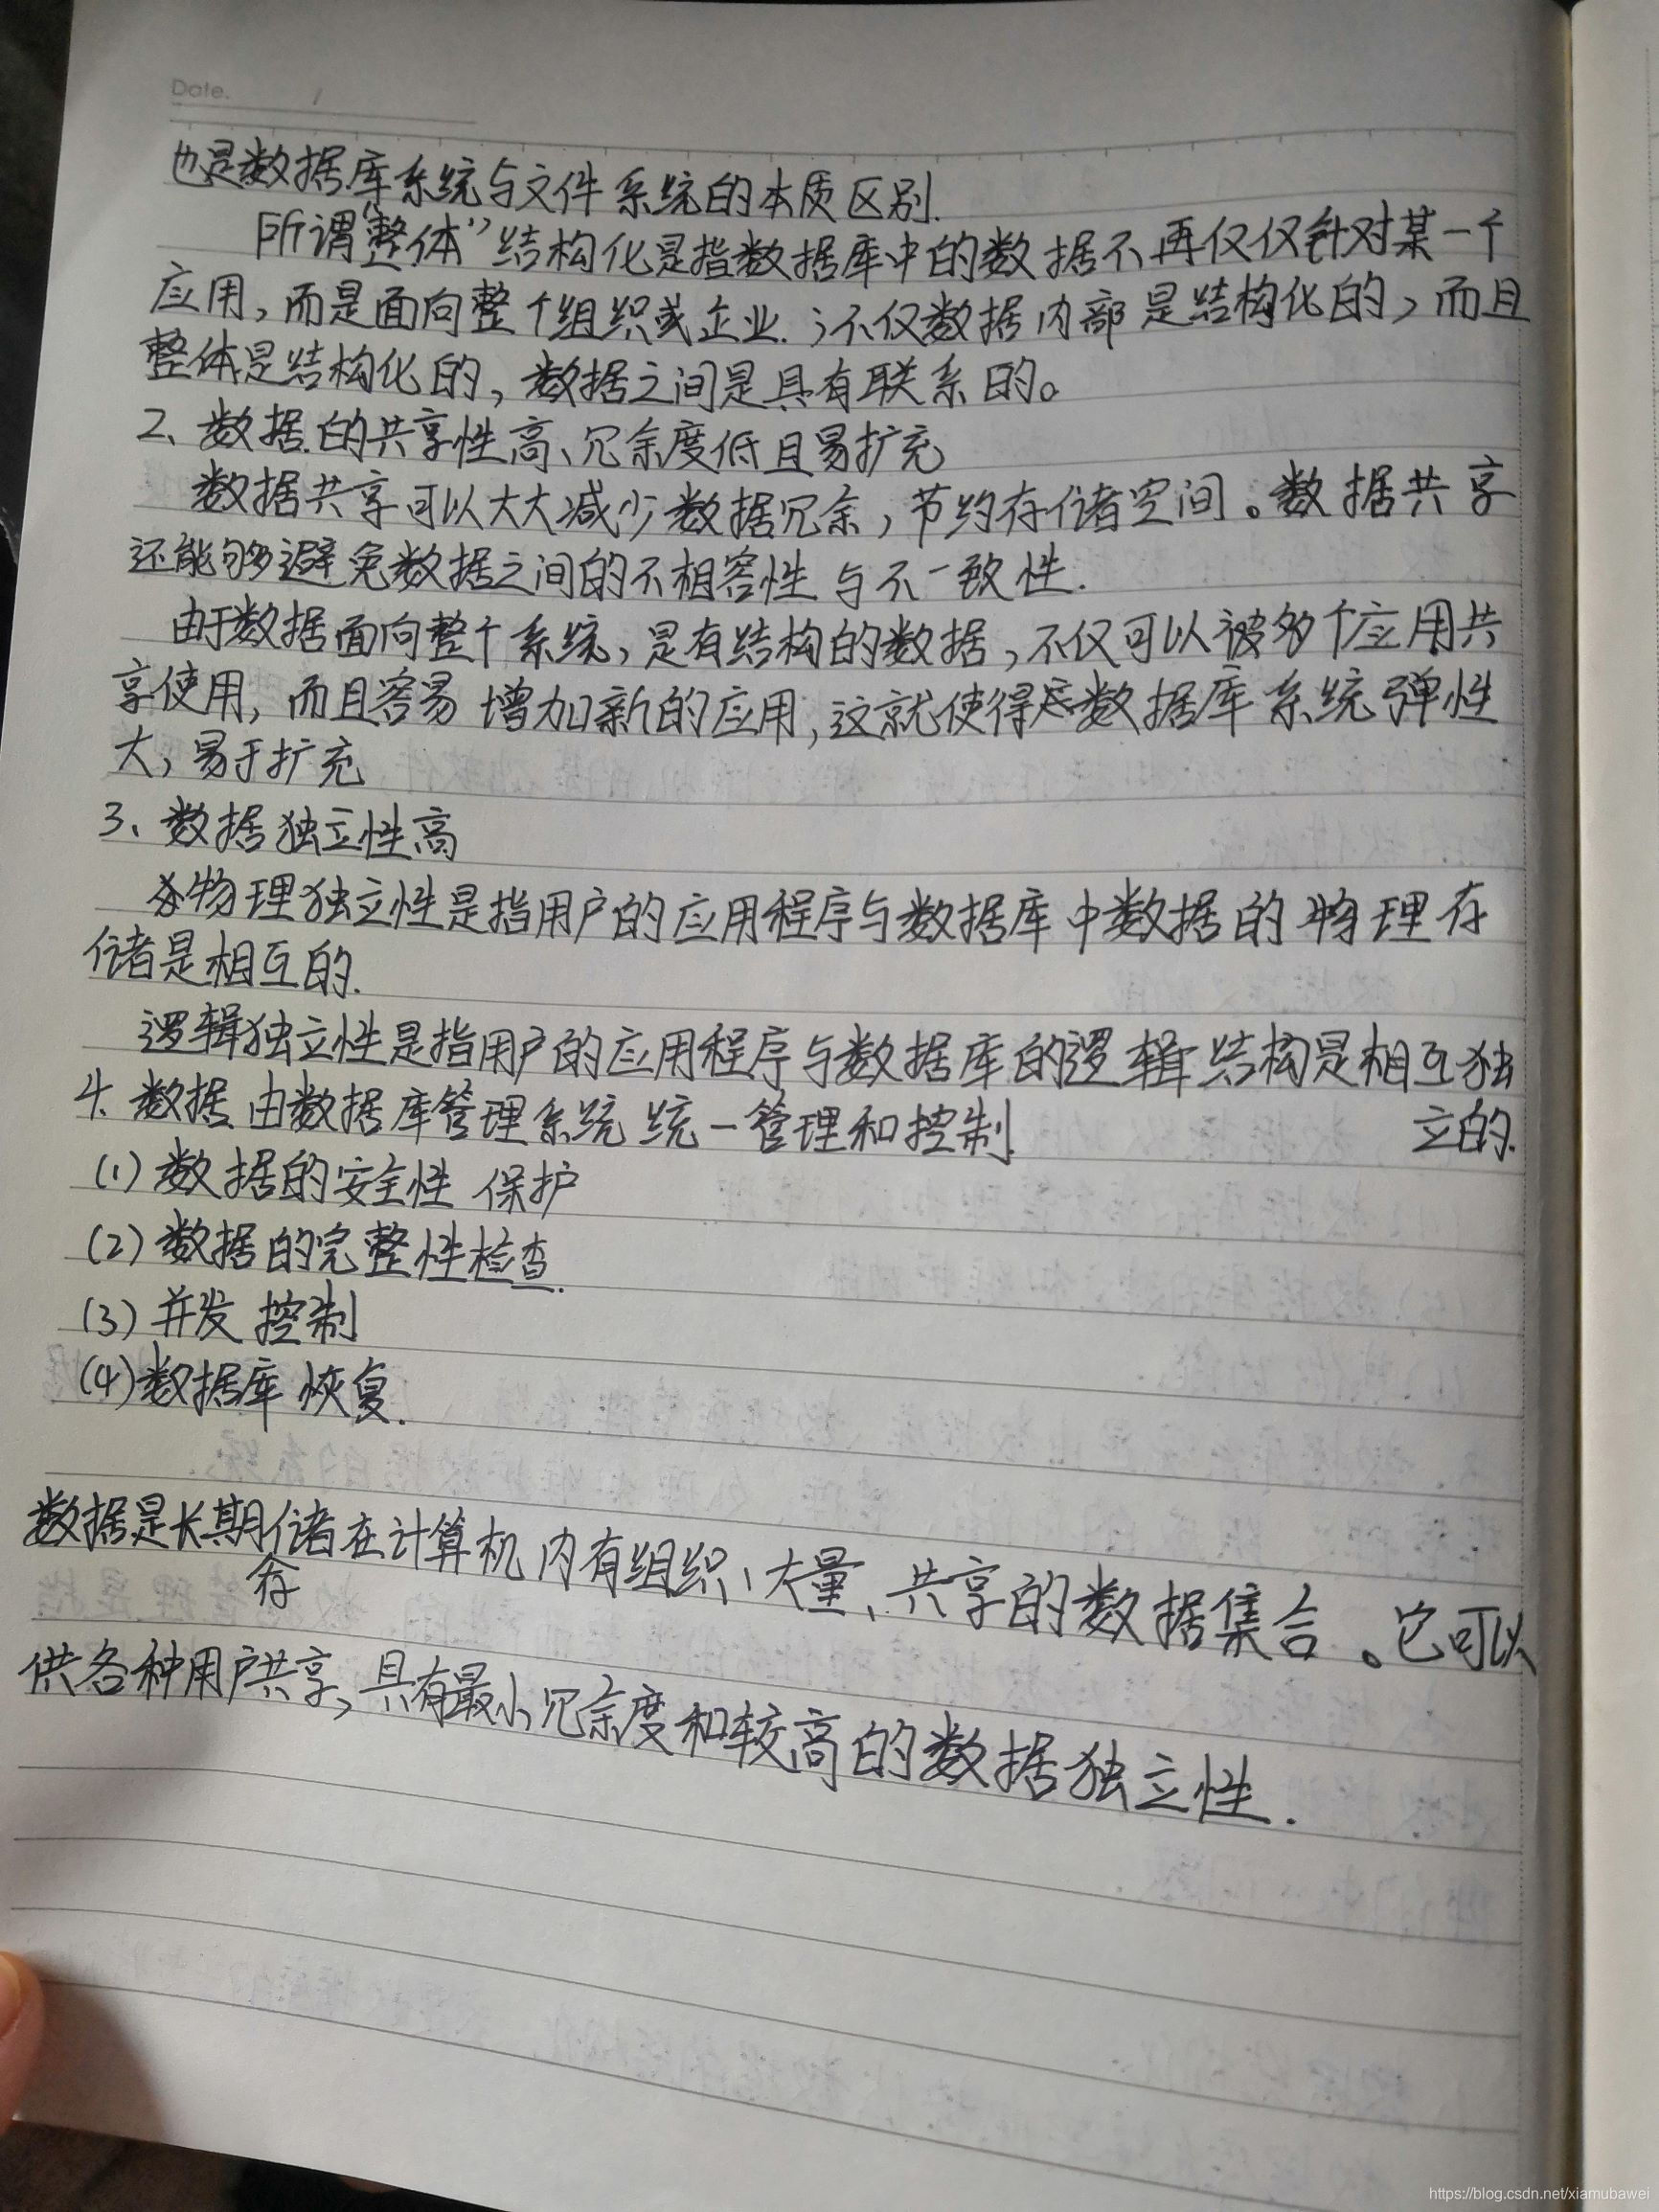 Date.
也是数据库系统与文件系统的本质区别.
所谓“整体”结构化是指数据库中的数据不再仅仅针对某一个
应用,而是面向整个组织或企业.;不仅数据内部是结构化的,而且
整体是结构化的,数据之间是具有联系的。
2、数据的共享性高、冗余度低且易扩充
数据共享可以大大减少数据冗余,节约存储空间。数据共享
还能够避免数据之间的不相容性与不一致性.
由于数据面向整个系统,是有结构的数据,不仅可以被多个应用共
享使用,而且容易增加新的应用,这就使得数据库系统弹性
大,易于扩充
3、数据独立性高
物理独立性是指用户的应用程序与数据库中数据的物理存
储是相互的.
逻辑独立性是指用户的应用程序与数据库的逻辑结构是相互独
立的.
4.数据由数据库管理系统统一管理和控制
(1)数据的安全性保护
(2)数据的完整性检查.
(3)并发控制
(4)数据库恢复.
数据是长期存储在计算机内有组织、大量、共享的数据集合。它可以
供各种用户共享,具有最小冗余度和较高的数据独立性.
https://blog.csdn.net/xiamubawei